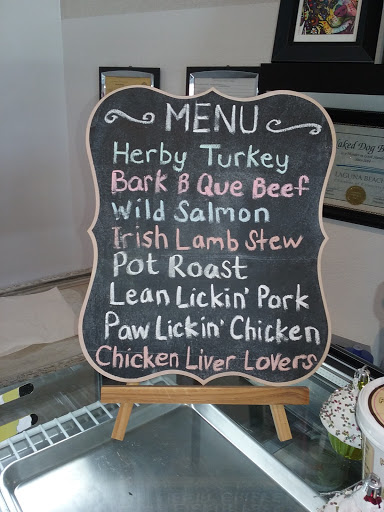 MENU
Herby Turkey
Bark B Que Beef
Wild Salmon
Irish Lamb Stew
Pot Roast
Lean Lickin' Pork
Paw Lickin' Chicken
Chicken Liver Lovers
aked Dog B
LAGUNA BEACH